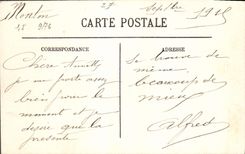 27 Septbre 1915
CARTE POSTALE
CORRESPONDANCE
ADRESSE
Chère
je me porte assez
bien pour le
moment et je
désire que la
présente
se trouve de
même
beaucoup de
mieux
Alfred